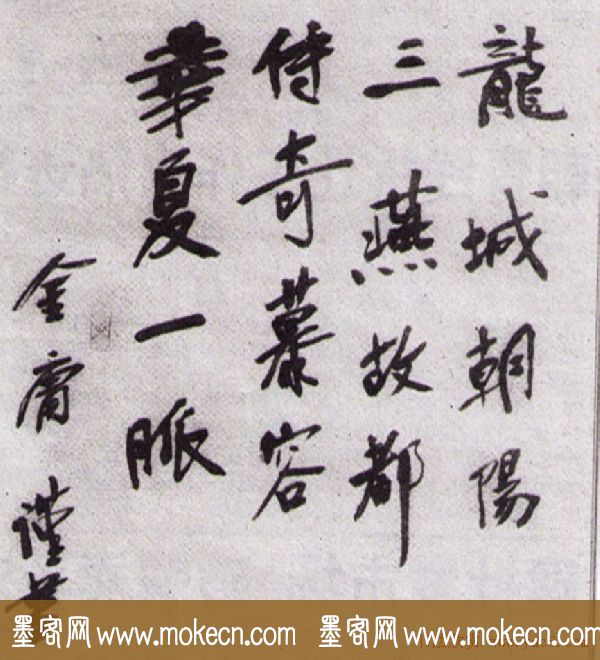 龍城朝陽
三燕故都
傳奇慕容
華夏一脈
金庸 謹書
墨客网 www.mokecn.com 墨客网 www.mokecn.com